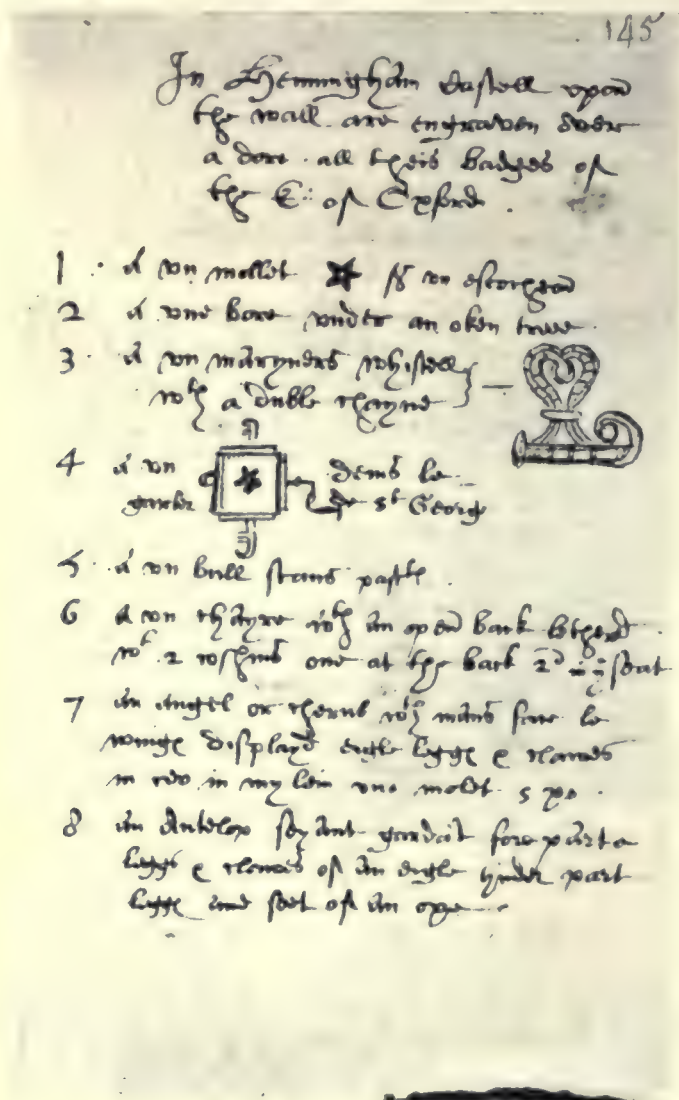 145
In Henningham Castell upon
the wall are engraven over
a dore all theis badges of
the E: of Oxford.
1 A un mollet sr un escorchen
2 A une bore under an oken tree
3 A un maryners whistell
wth a duble chayne
4 A un dens le
garter de St Georg
5 A un bull stans
6 A un chayre wth an open back
wt 2 one at the back 2d in ye seat
7 An Angel or cherub wth mans face le
wings displayd eigle leggs & clawes
in my leiu une molet 5 po.
8 An Antelop seyant gardant fore parte
leggs & clawes of an eigle hinder part
leggs and feet of an oxe